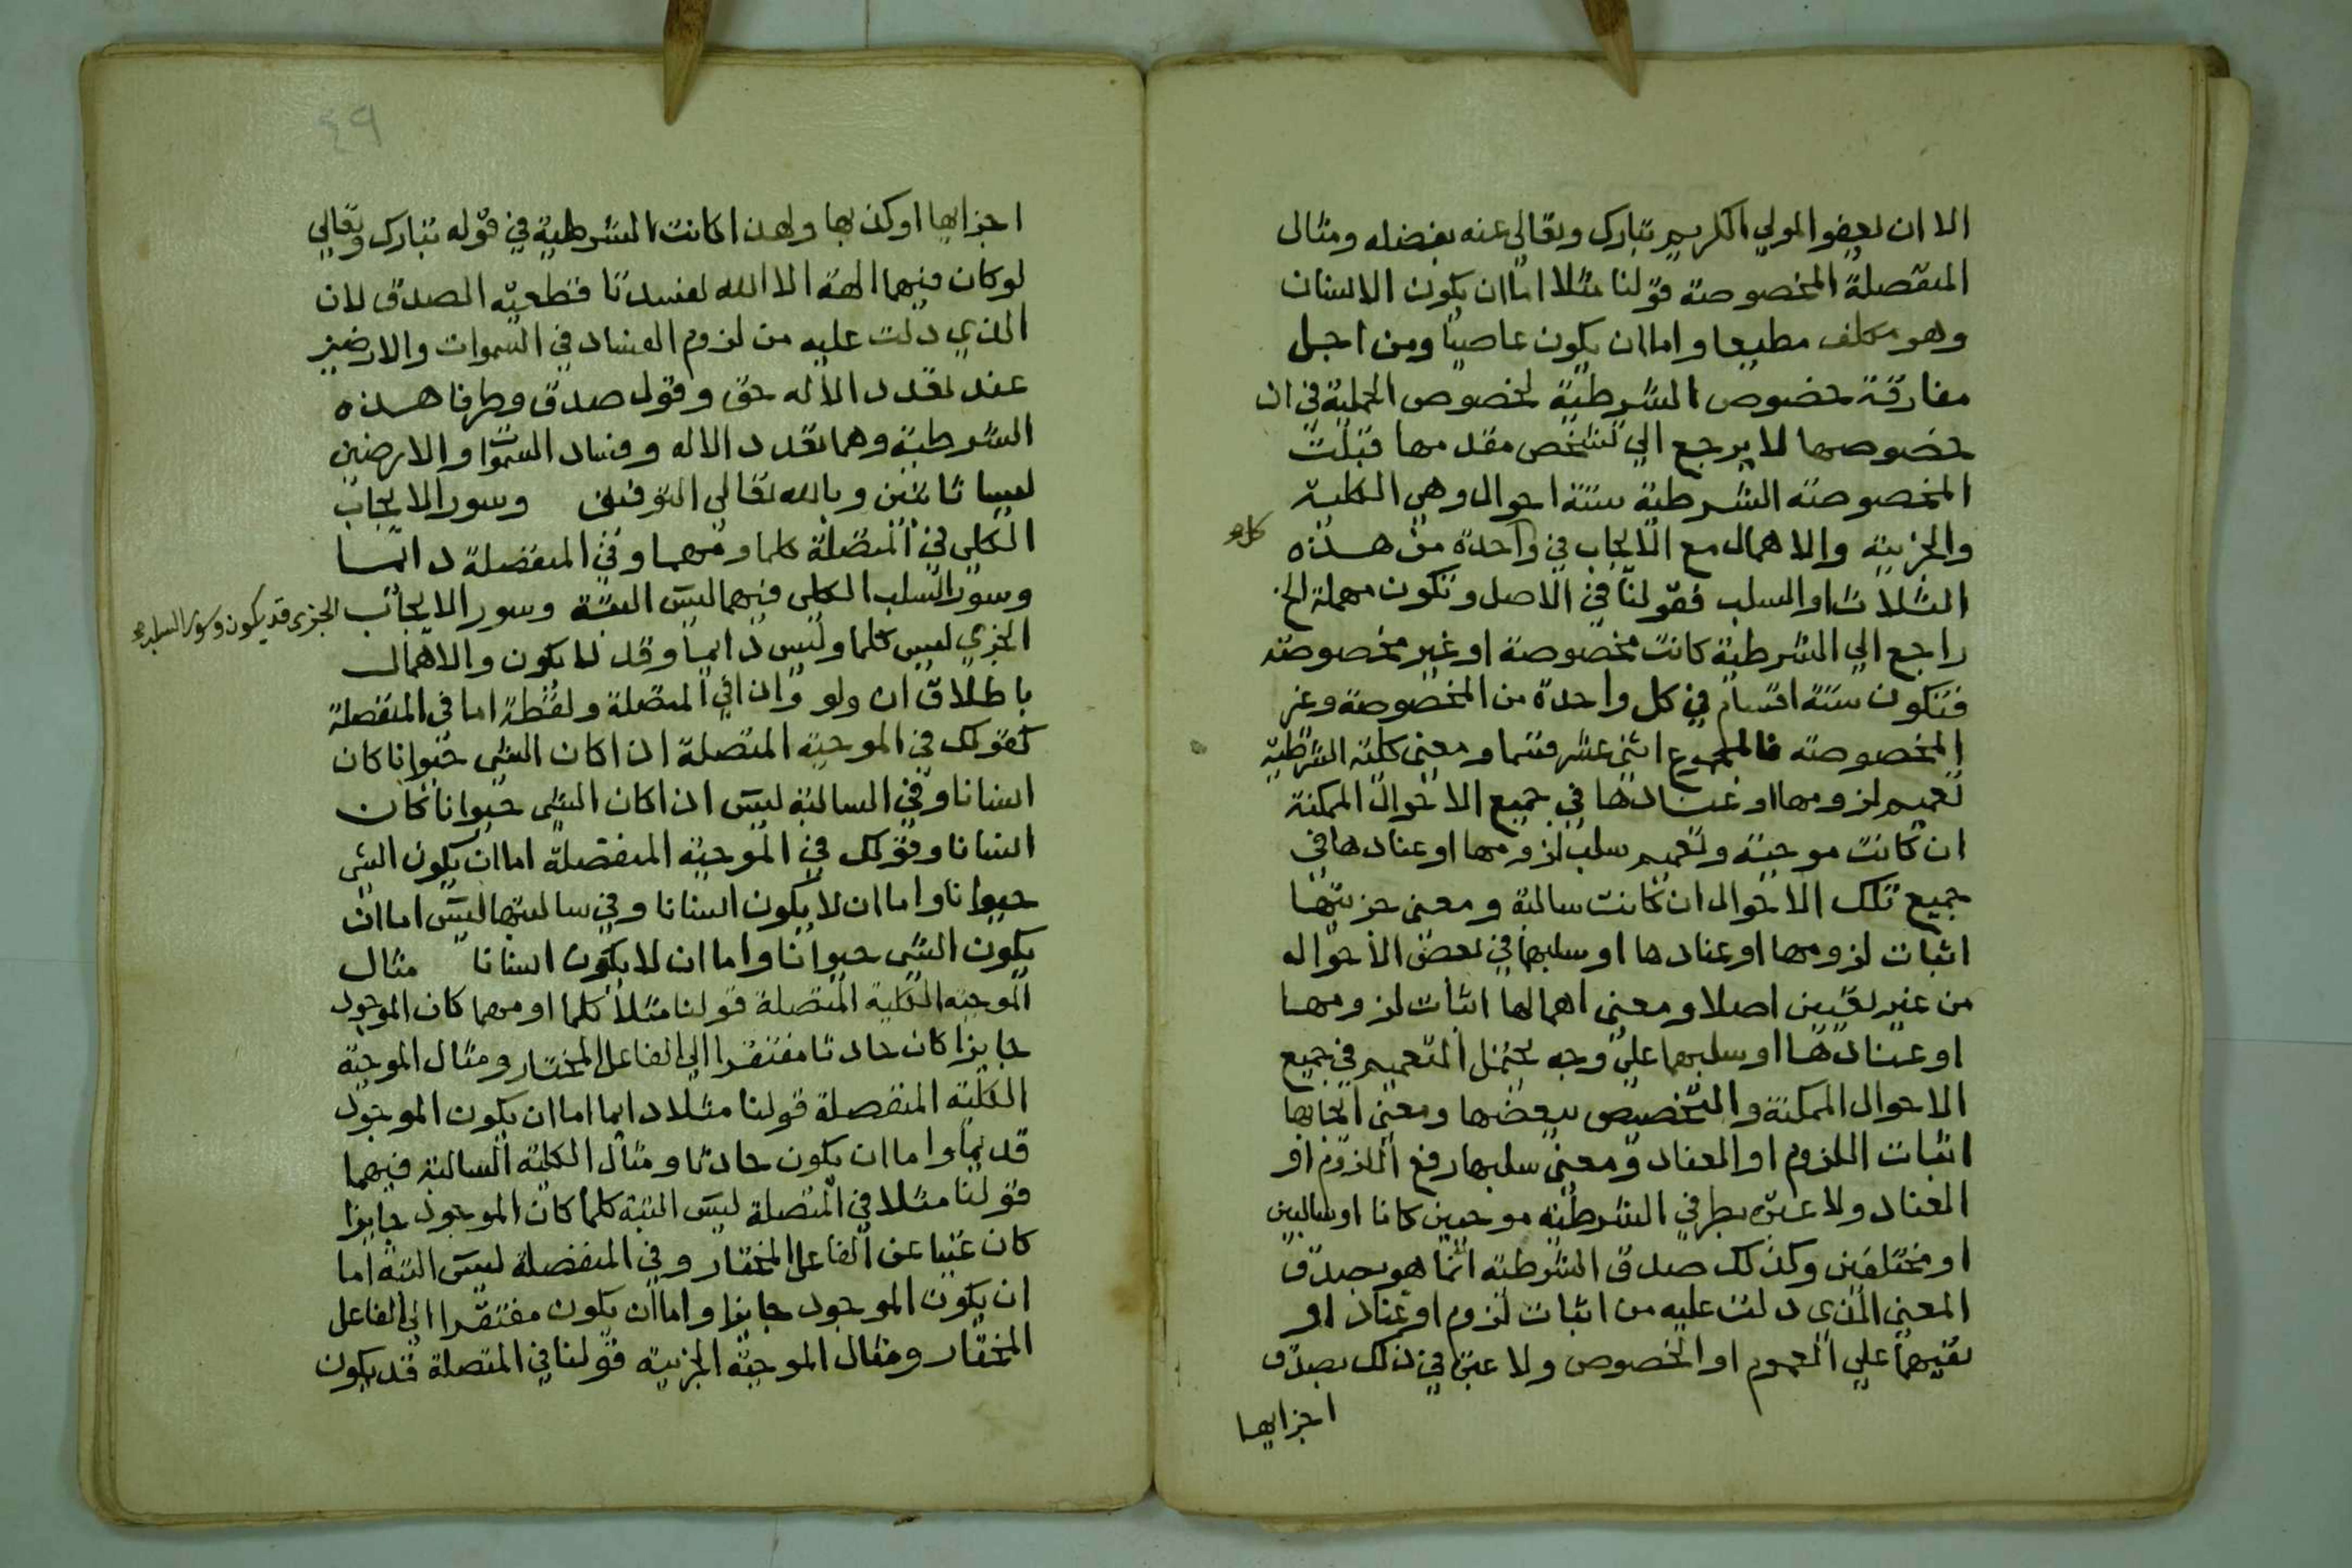 الا ان يعفو المولي الكريم تبارك وتعالي عنه بفضله ومثال
المنفصلة المخصوصة قولنا مثلا اما ان يكون الانسان
وهو مكلف مطيعا واما ان يكون عاصيا ومن اجل
مفارقة خصوص الشرطية لخصوص الحملية في ان
خصوصها لا يرجع الي تشخص مقدمها قبلت
المخصوصة الشرطية ستة احوال وهي الكلية
والجزيية والاهمال مع الايجاب في واحدة من هذه
كل
الثلاث او السلب فقولنا في الاصل وتكون مهملة الخ
راجع الي الشرطية كانت مخصوصة او غير مخصوصة
فتكون ستة اقسام في كل واحدة من المخصوصة وغير
المخصوصة فالمجموع اثني عشر قسما ومعني كلية الشرطية
تعميم لزومها او عنادها في جميع الاحوال الممكنة
ان كانت موجبة وتعميم سلب لزومها او عنادها في
جميع تلك الاحوال ان كانت سالبة ومعني جزييتها
اثبات لزومها او عنادها او سلبهما في بعض الاحوال
من غير تعيين اصلا ومعني اهمالها اثبات لزومها
او عنادها او سلبهما علي وجه يحتمل التعميم في جميع
الاحوال الممكنة والتخصيص ببعضها ومعني ايجابها
اثبات اللزوم او العناد ومعني سلبها رفع اللزوم او
العناد ولا عبرة بطرفي الشرطية موجبين كانا او سالبين
او مختلفين وكذلك صدق الشرطية انما هو بصدق
المعني الذي دلت عليه من اثبات لزوم او عناد او
نفيهما علي العموم او الخصوص ولا عبرة في ذلك بصدق
اجزايها
٤٩
اجزايها او كذبها ولهذا كانت الشرطية في قوله تبارك وتعالي
لو كان فيهما الهة الا الله لفسدتا قطعية الصدق لان
الذي دلت عليه من لزوم الفساد في السموات والارضين
عند تعدد الاله حق وقول صدق وطرفا هذه
الشرطية وهما تعدد الاله وفساد السموا والارضين
ليسا ثابتين وبالله تعالي التوفيق وسور الايجاب
الكلي في المتصلة كلما ومهما وفي المنفصلة دايما
وسور السلب الكلي فيهما ليس البتة وسور الايجاب الجزي قد يكون وسور السلب
الجزي ليس كلما وليس دايما وقد لا يكون والاهمال
باطلاق ان ولو واذا في المتصلة ولفظة اما في المنفصلة
كقولك في الموجبة المتصلة اذا كان الشي حيوانا كان
انسانا وفي السالبة ليس اذا كان الشي حيوانا كان
انسانا وقولك في الموجبة المنفصلة اما ان يكون الشي
حيوانا واما ان لا يكون انسانا وفي سالبتها ليس اما ان
يكون الشي حيوانا واما ان لا يكون انسانا مثال
الموجبة الكلية المتصلة قولنا مثلا كلما او مهما كان الموجود
جايزا كان حادثا مفتقرا الي الفاعل المختار ومثال الموجبة
الكلية المنفصلة قولنا مثلا دايما اما ان يكون الموجود
قديما واما ان يكون حادثا ومثال الكلية السالبة فيهما
قولنا مثلا في المتصلة ليس البتة كلما كان الموجود جايزا
كان غنيا عن الفاعل المختار وفي المنفصلة ليس البتة اما
ان يكون الموجود جايزا واما ان يكون مفتقرا الي الفاعل
المختار ومثال الموجبة الجزيية قولنا في المتصلة قد يكون